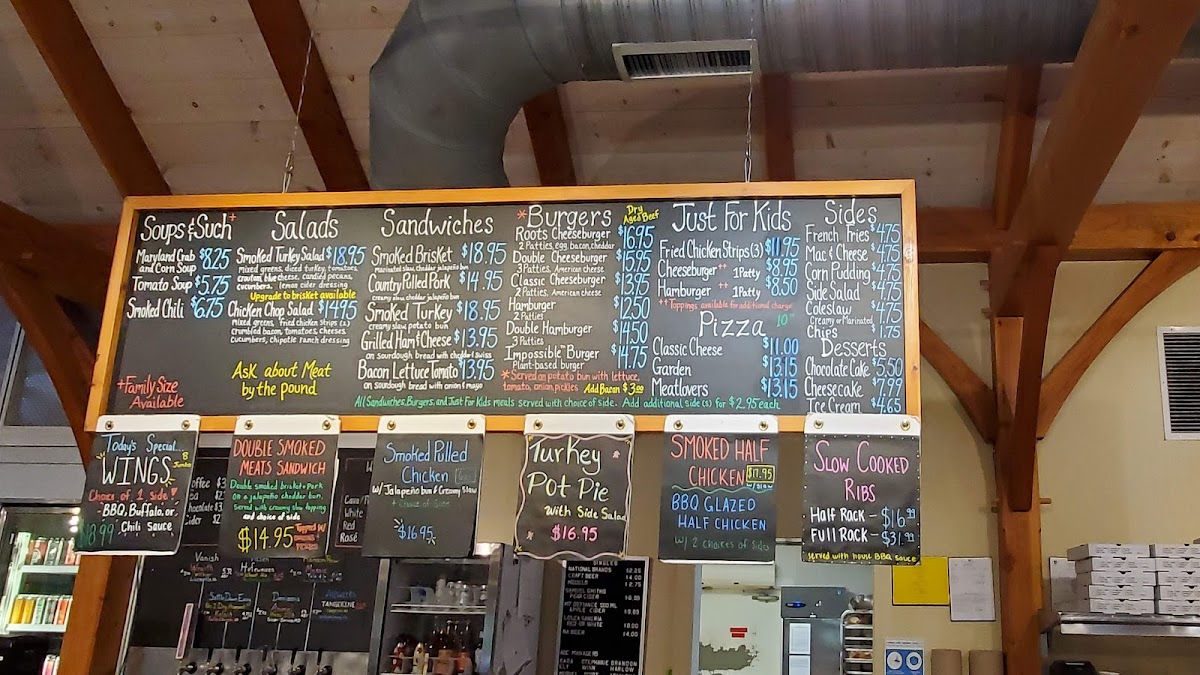 Soups & Such+
Maryland Crab
and Corn Soup $8.25
Tomato Soup $5.75
Smoked Chili $6.75
+Family Size
Available
Salads
Smoked Turkey Salad $18.95
mixed greens, diced turkey, tomatoes,
crouton, blue cheese, candied pecans,
cucumbers, lemon cider dressing
Upgrade to brisket available
Chicken Chop Salad $14.95
mixed greens, fried chicken strips (2)
crumbled bacon, tomatoes, cheese,
cucumbers, chipotle ranch dressing
Ask about Meat
by the pound
Sandwiches
Smoked Brisket $18.95
marinated slaw, cheddar jalapeño bun
Country Pulled Pork $14.95
creamy slaw, cheddar jalapeño bun
Smoked Turkey $18.95
creamy slaw, potato bun
Grilled Ham & Cheese $13.95
on sourdough bread with cheddar & swiss
Bacon Lettuce Tomato $13.95
on sourdough bread with onion & mayo
*Burgers
Dry
Aged Beef
Roots Cheeseburger $16.95
2 Patties, egg, bacon, cheddar
Double Cheeseburger $15.95
3 Patties, American cheese
Classic Cheeseburger $13.95
2 Patties, American cheese
Hamburger $12.50
2 Patties
Double Hamburger $14.50
3 Patties
Impossible™ Burger $14.75
Plant-based burger
*Served on potato bun with lettuce,
tomato, onion, pickles Add Bacon $3.00
Just For Kids
Fried Chicken Strips (3) $11.95
Cheeseburger++ 1 Patty $8.75
Hamburger ++ 1 Patty $8.50
++Toppings available for additional charge
Pizza 10"
Classic Cheese $11.00
Garden $13.15
Meatlovers $13.15
Sides
French Fries $4.75
Mac & Cheese $4.75
Corn Pudding $4.75
Side Salad $4.75
Coleslaw $4.75
Creamy or Marinated
Chips $1.75
Desserts
Chocolate Cake $5.50
Cheesecake $7.99
Ice Cream $4.65
All Sandwiches, Burgers, and Just For Kids meals served with choice of side. Add additional side(s) for $2.95 each
Today's Special...
WINGS
8
Jumbo
Choice of 1 side!
BBQ, Buffalo, or
Chili sauce
DOUBLE SMOKED
MEATS SANDWICH
Double smoked brisket & pork
on a jalapeño cheddar bun,
served with creamy slaw topping
and choice of side
$14.95
Smoked Pulled
Chicken
w/ Jalapeño bun & Creamy Slaw
+ Choice of Side
$16.95
Turkey
Pot Pie
With Side Salad
$16.95
SMOKED HALF
CHICKEN $17.95
w/ slaw
BBQ GLAZED
HALF CHICKEN
w/ 2 choices of sides
SLOW COOKED
RIBS
Half Rack - $16.99
Full Rack - $31.99
served with house BBQ sauce
SINGLES
NATIONAL BRANDS
CRAFT BEER
TANGERINE